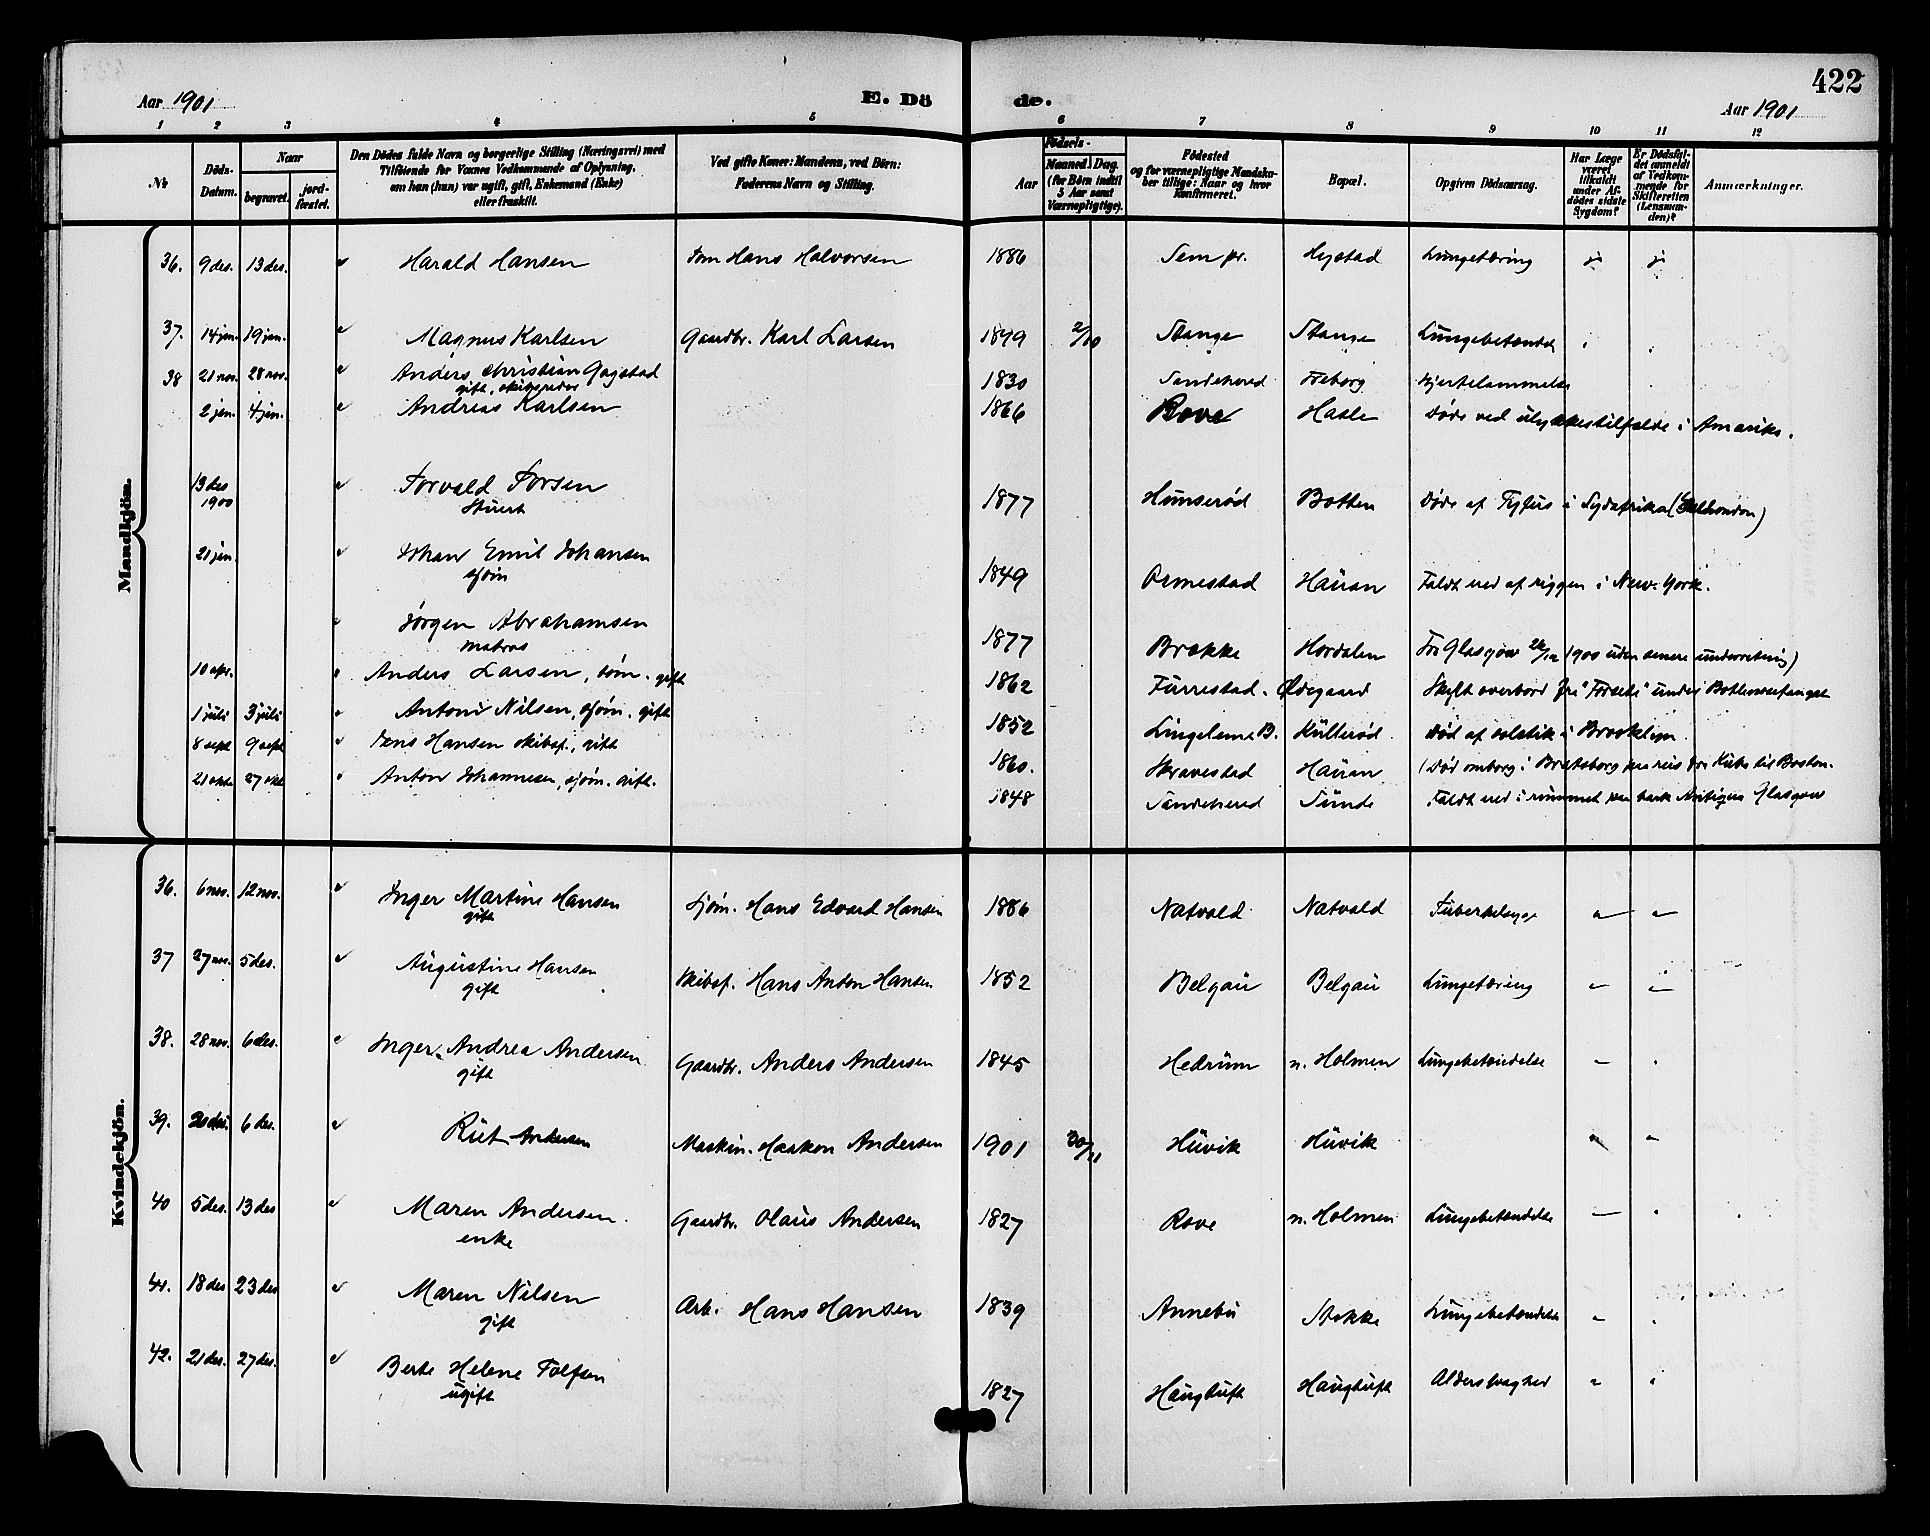 422
Aar 1901 E. Dö de. Aar 1901
1 2 3 4 5 6 7 8 9 10 11 12
№
Döds-Datum.
Naar
begravet.
jord-fæstet.
Den Dödes fulde Navn og borgerlige Stilling (Næringsvei) med
Tilföiende for Voxnes Vedkommende af Oplysning,
om han (hun) var ugift, gift, Enkemand (Enke)
eller fraskilt.
Ved gifte Koner: Mandens, ved Börn:
Faderens Navn og Stilling.
Födsels-
Aar
Maaned. Dag.
(for Börn indtil
5 Aar samt
Værnepligtige).
Födested
og for værnepligtige Mandska-
ber tillige: Naar og hvor
Konfirmeret.
Bopæl.
Opgiven Dödsaarsag.
Har Læge
været
tilkaldt
under Af-
dödes sidste
Sygdom?
Er Dödsfal-
det anmeldt
af Vedkom-
mende for
Skifteretten
(Lensman-
den)?
Anmærkninger.
Mandkjön.
36. 9 des. 13 des. Harald Hansen Hans Halvorsen 1886 Sem pr. Hystad Lungetæring j j
37. 14 jan. 19 jan. Magnus Karlsen Gaardbr. Karl Larsen 1899 2/10 Stange Stange Lungebetændel
38 21 nov. 28 nov. Anders Christian Gogstad 1830 Sandeherred Freborg Hjertelammelse
gift, skibsreder
2 jan. 4 jan. Andreas Karlsen 1866 Rove Hasle Døde ved ulykkestilfælde i Amerika.
13 des 1900 Torvald Torsen 1877 Hunserød Botten Døde af Tyfus i Sydafrika
Stuert
21 jan. Johan Emil Johansen 1849 Ormestad Hauan Faldt ned af riggen i New-York.
sjøm
Jørgen Abrahamsen 1877 Brække Hordalen Fra Glasgow 1900 uden senere underretning)
matros
10 apr. Anders Larsen, søm. gift 1862 Furrestad. Ødegaard Skylt overbord fra "Forseti" under Bottlenosefangst
1 juli 3 juli Anton Nilsen, sjøm. gift 1852 Lingelem B. Kullerød. Død af solstik i Brooklyn.
8 sept 9 sept Jens Hansen skibsf., gift 1860. Skravestad Hauan (Død ombord i Bratsborg paa reis fra Kuba til Boston.
21 okt 27 okt Anton Johannesen, sjøm. gift. 1848 Sandeherred Sunde Faldt ned i rummet paa bark Antigua Glasgow
Kvindekjön.
36. 6 nov. 12 nov. Inger Martine Hansen Sjøm. Hans Edvard Hansen 1886 Natvald Natvald
gift
37 27 nov. 5 des. Augustine Hansen Skibsf. Hans Anton Hansen 1852 Belgau Belgau Lungetæring
gift
38. 28 nov. 6 des. Inger Andrea Andersen Gaardbr. Anders Andersen 1845 Hedrum n. Holmen Lungebetændelse
gift
39. 6 des. Rut Andersen Maskin. Haakon Andersen 1901 30/11 Huvik Huvik
40 5 des. 13 des Maren Andersen. Gaardbr. Olaus Andersen 1827 Rove n. Holmen Lungebetændelse
enke
41. 18 des 23 des Maren Nilsen Arb. Hans Hansen 1839 Annebu Stokke Lungebetændelse
gift
42. 21 des. 27 des. Berte Helene Tolfsen 1827 Haugtuft Haugtuft Alderssvaghed
ugift